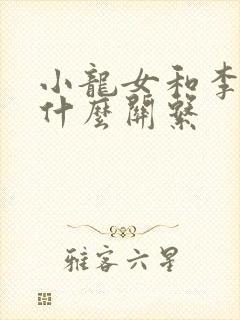 小龍女和李
什麼關繫
雅客六星